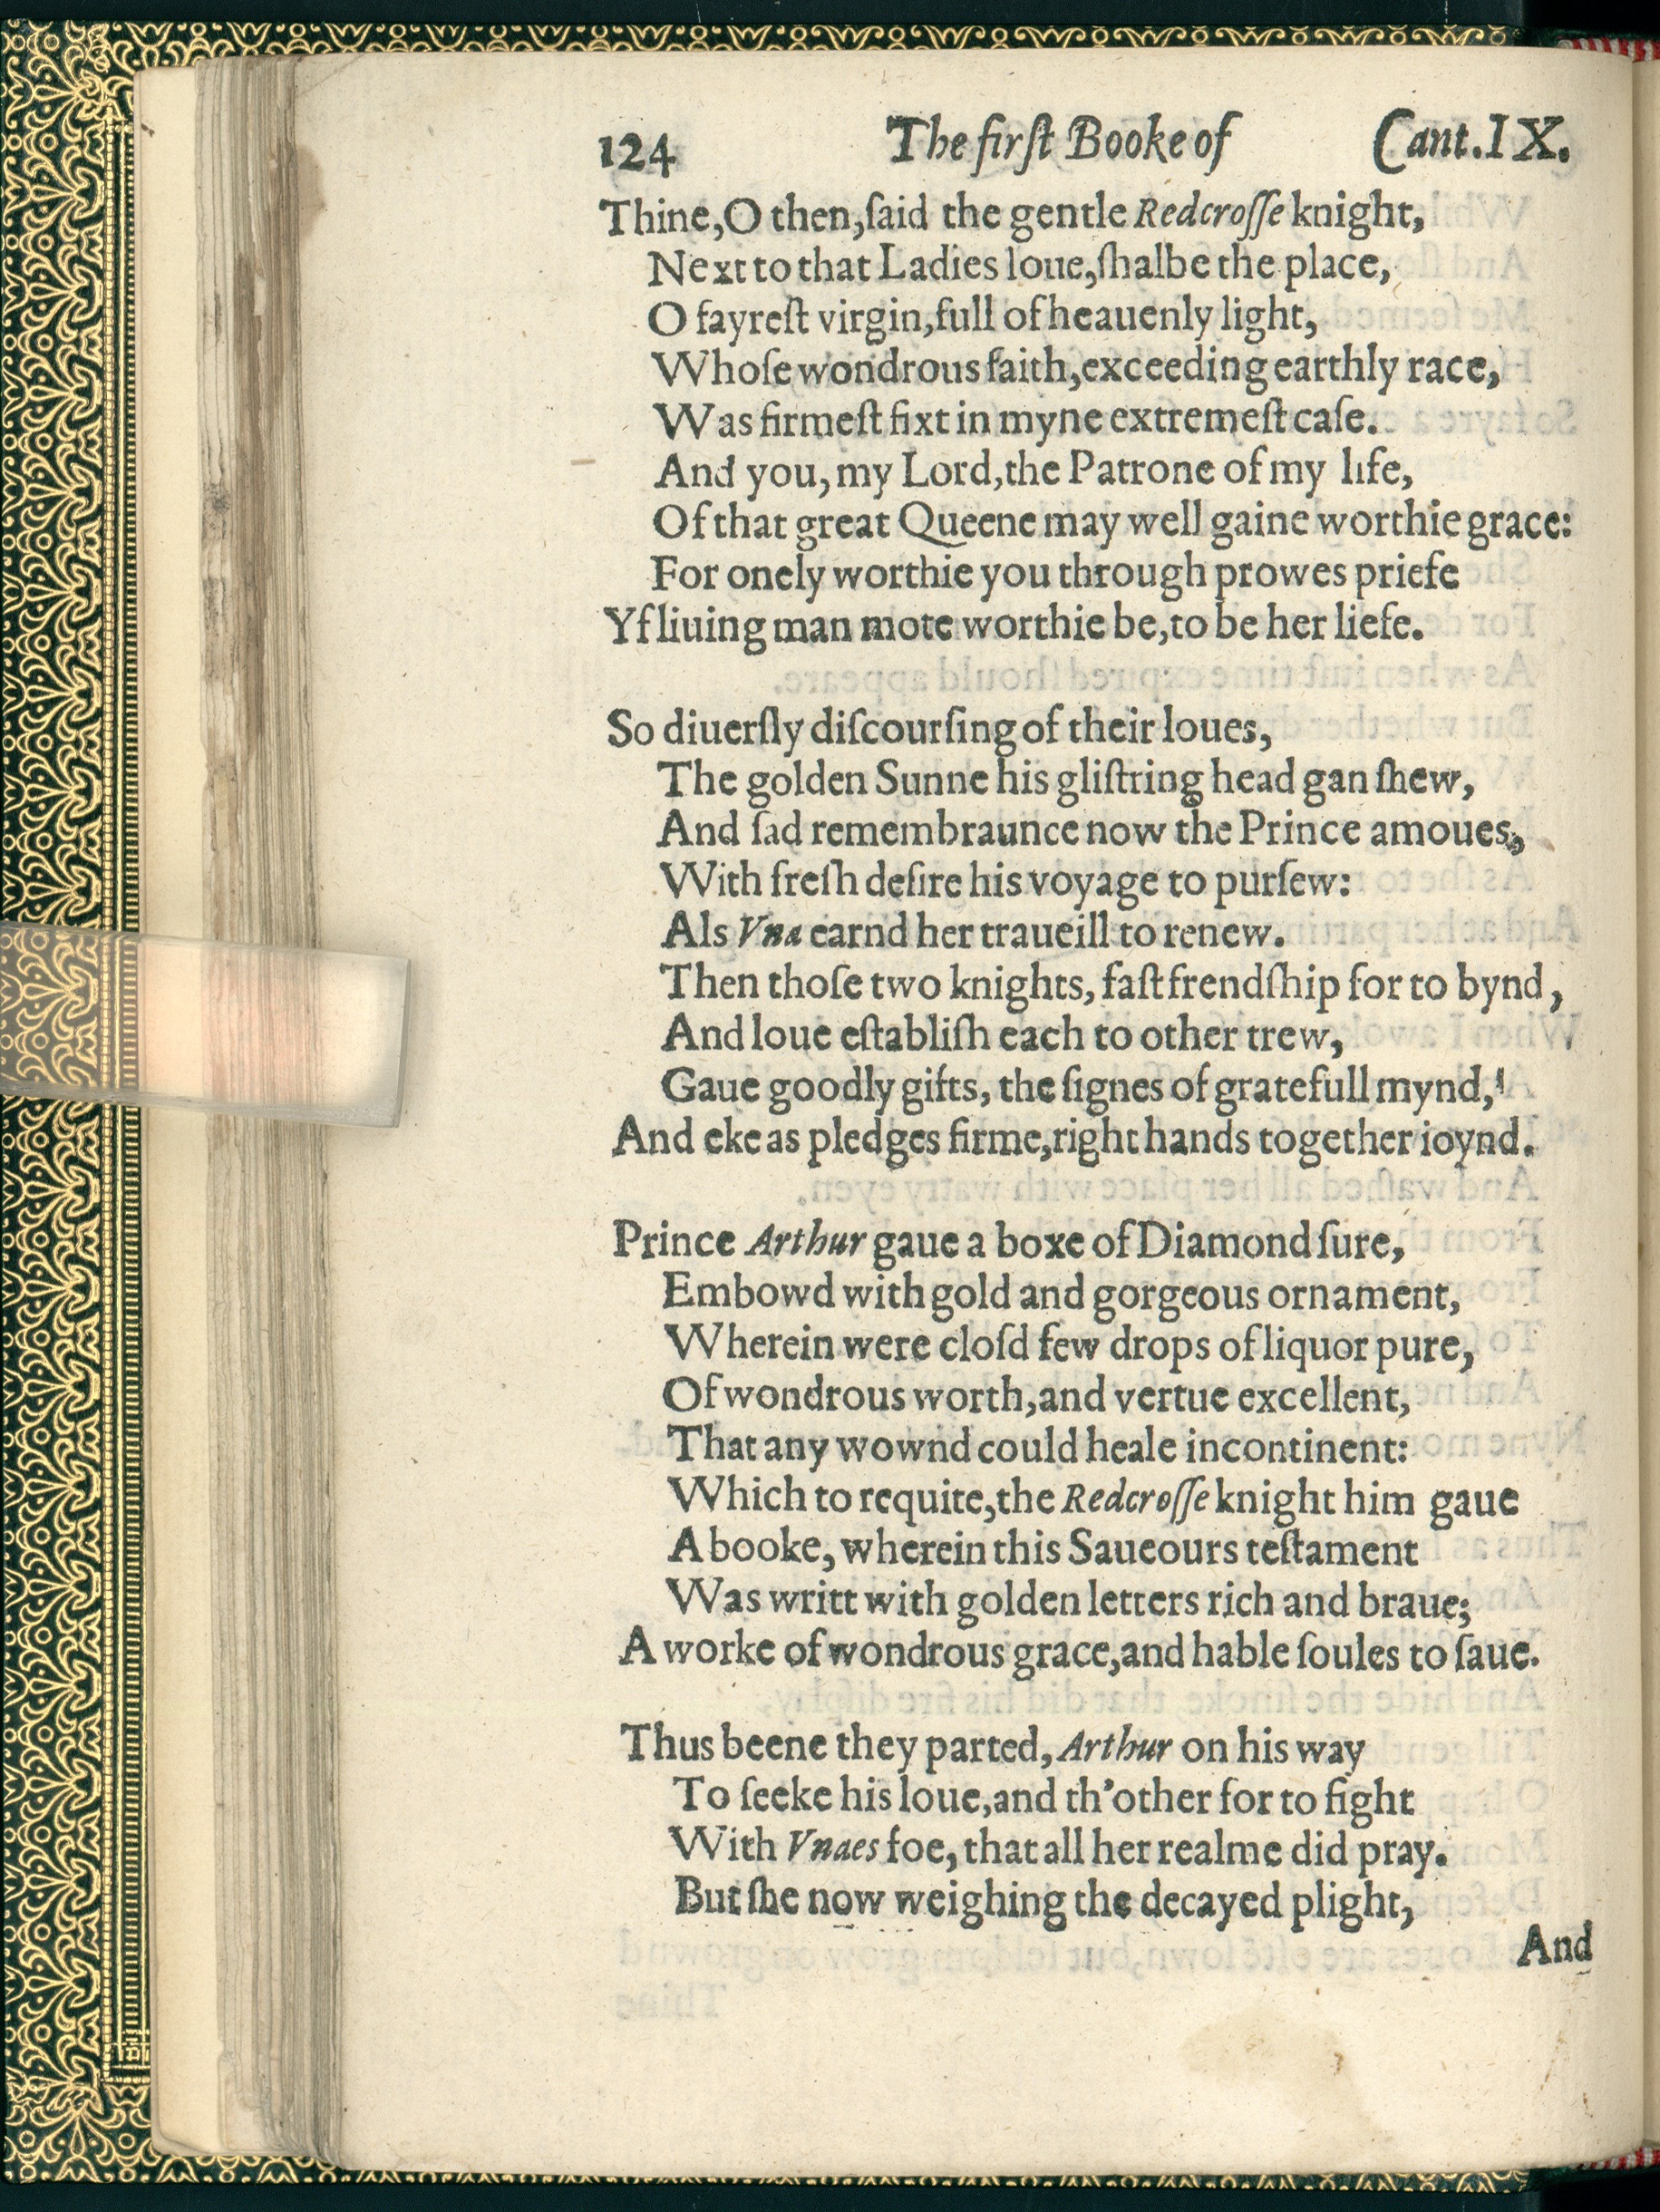 124 The firſt Booke of Cant. IX.
Thine, O then, ſaid the gentle Redcroſſe knight,
Next to that Ladies loue, ſhalbe the place,
O fayreſt virgin, full of heauenly light,
Whoſe wondrous faith, exceeding earthly race,
Was firmeſt fixt in myne extremeſt caſe.
And you, my Lord, the Patrone of my life,
Of that great Queene may well gaine worthie grace:
For onely worthie you through prowes priefe
Yf liuing man mote worthie be, to be her liefe.
So diuerſly diſcourſing of their loues,
The golden Sunne his gliſtring head gan ſhew,
And ſad remembraunce now the Prince amoues,
With freſh deſire his voyage to purſew:
Als Vna earnd her traueill to renew.
Then thoſe two knights, faſt frendſhip for to bynd,
And loue eſtabliſh each to other trew,
Gaue goodly gifts, the ſignes of gratefull mynd,
And eke as pledges firme, right hands together ioynd.
Prince Arthur gaue a boxe of Diamond ſure,
Embowd with gold and gorgeous ornament,
Wherein were cloſd few drops of liquor pure,
Of wondrous worth, and vertue excellent,
That any wownd could heale incontinent:
Which to requite, the Redcroſſe knight him gaue
A booke, wherein this Saueours teſtament
Was writt with golden letters rich and braue;
A worke of wondrous grace, and hable ſoules to ſaue.
Thus beene they parted, Arthur on his way
To ſeeke his loue, and th'other for to fight
With Vnaes foe, that all her realme did pray.
But ſhe now weighing the decayed plight,
And